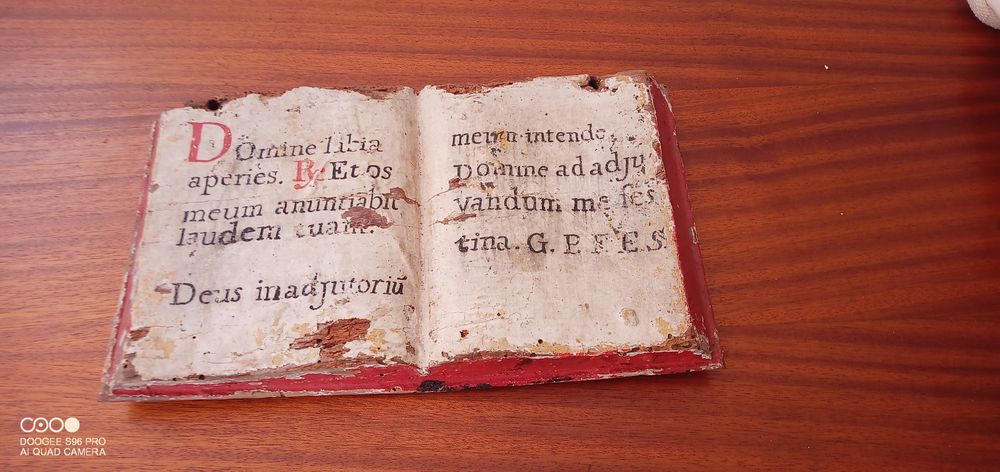 DOmine libia
aperies. ℟. Et os
meum anuntiabit
laudem tuam.
Deus in adjutoriū
meum intende.
Domine ad adju
vandum me fes
tina. G. P. F. E. S.
DOOGEE S96 PRO
AI QUAD CAMERA